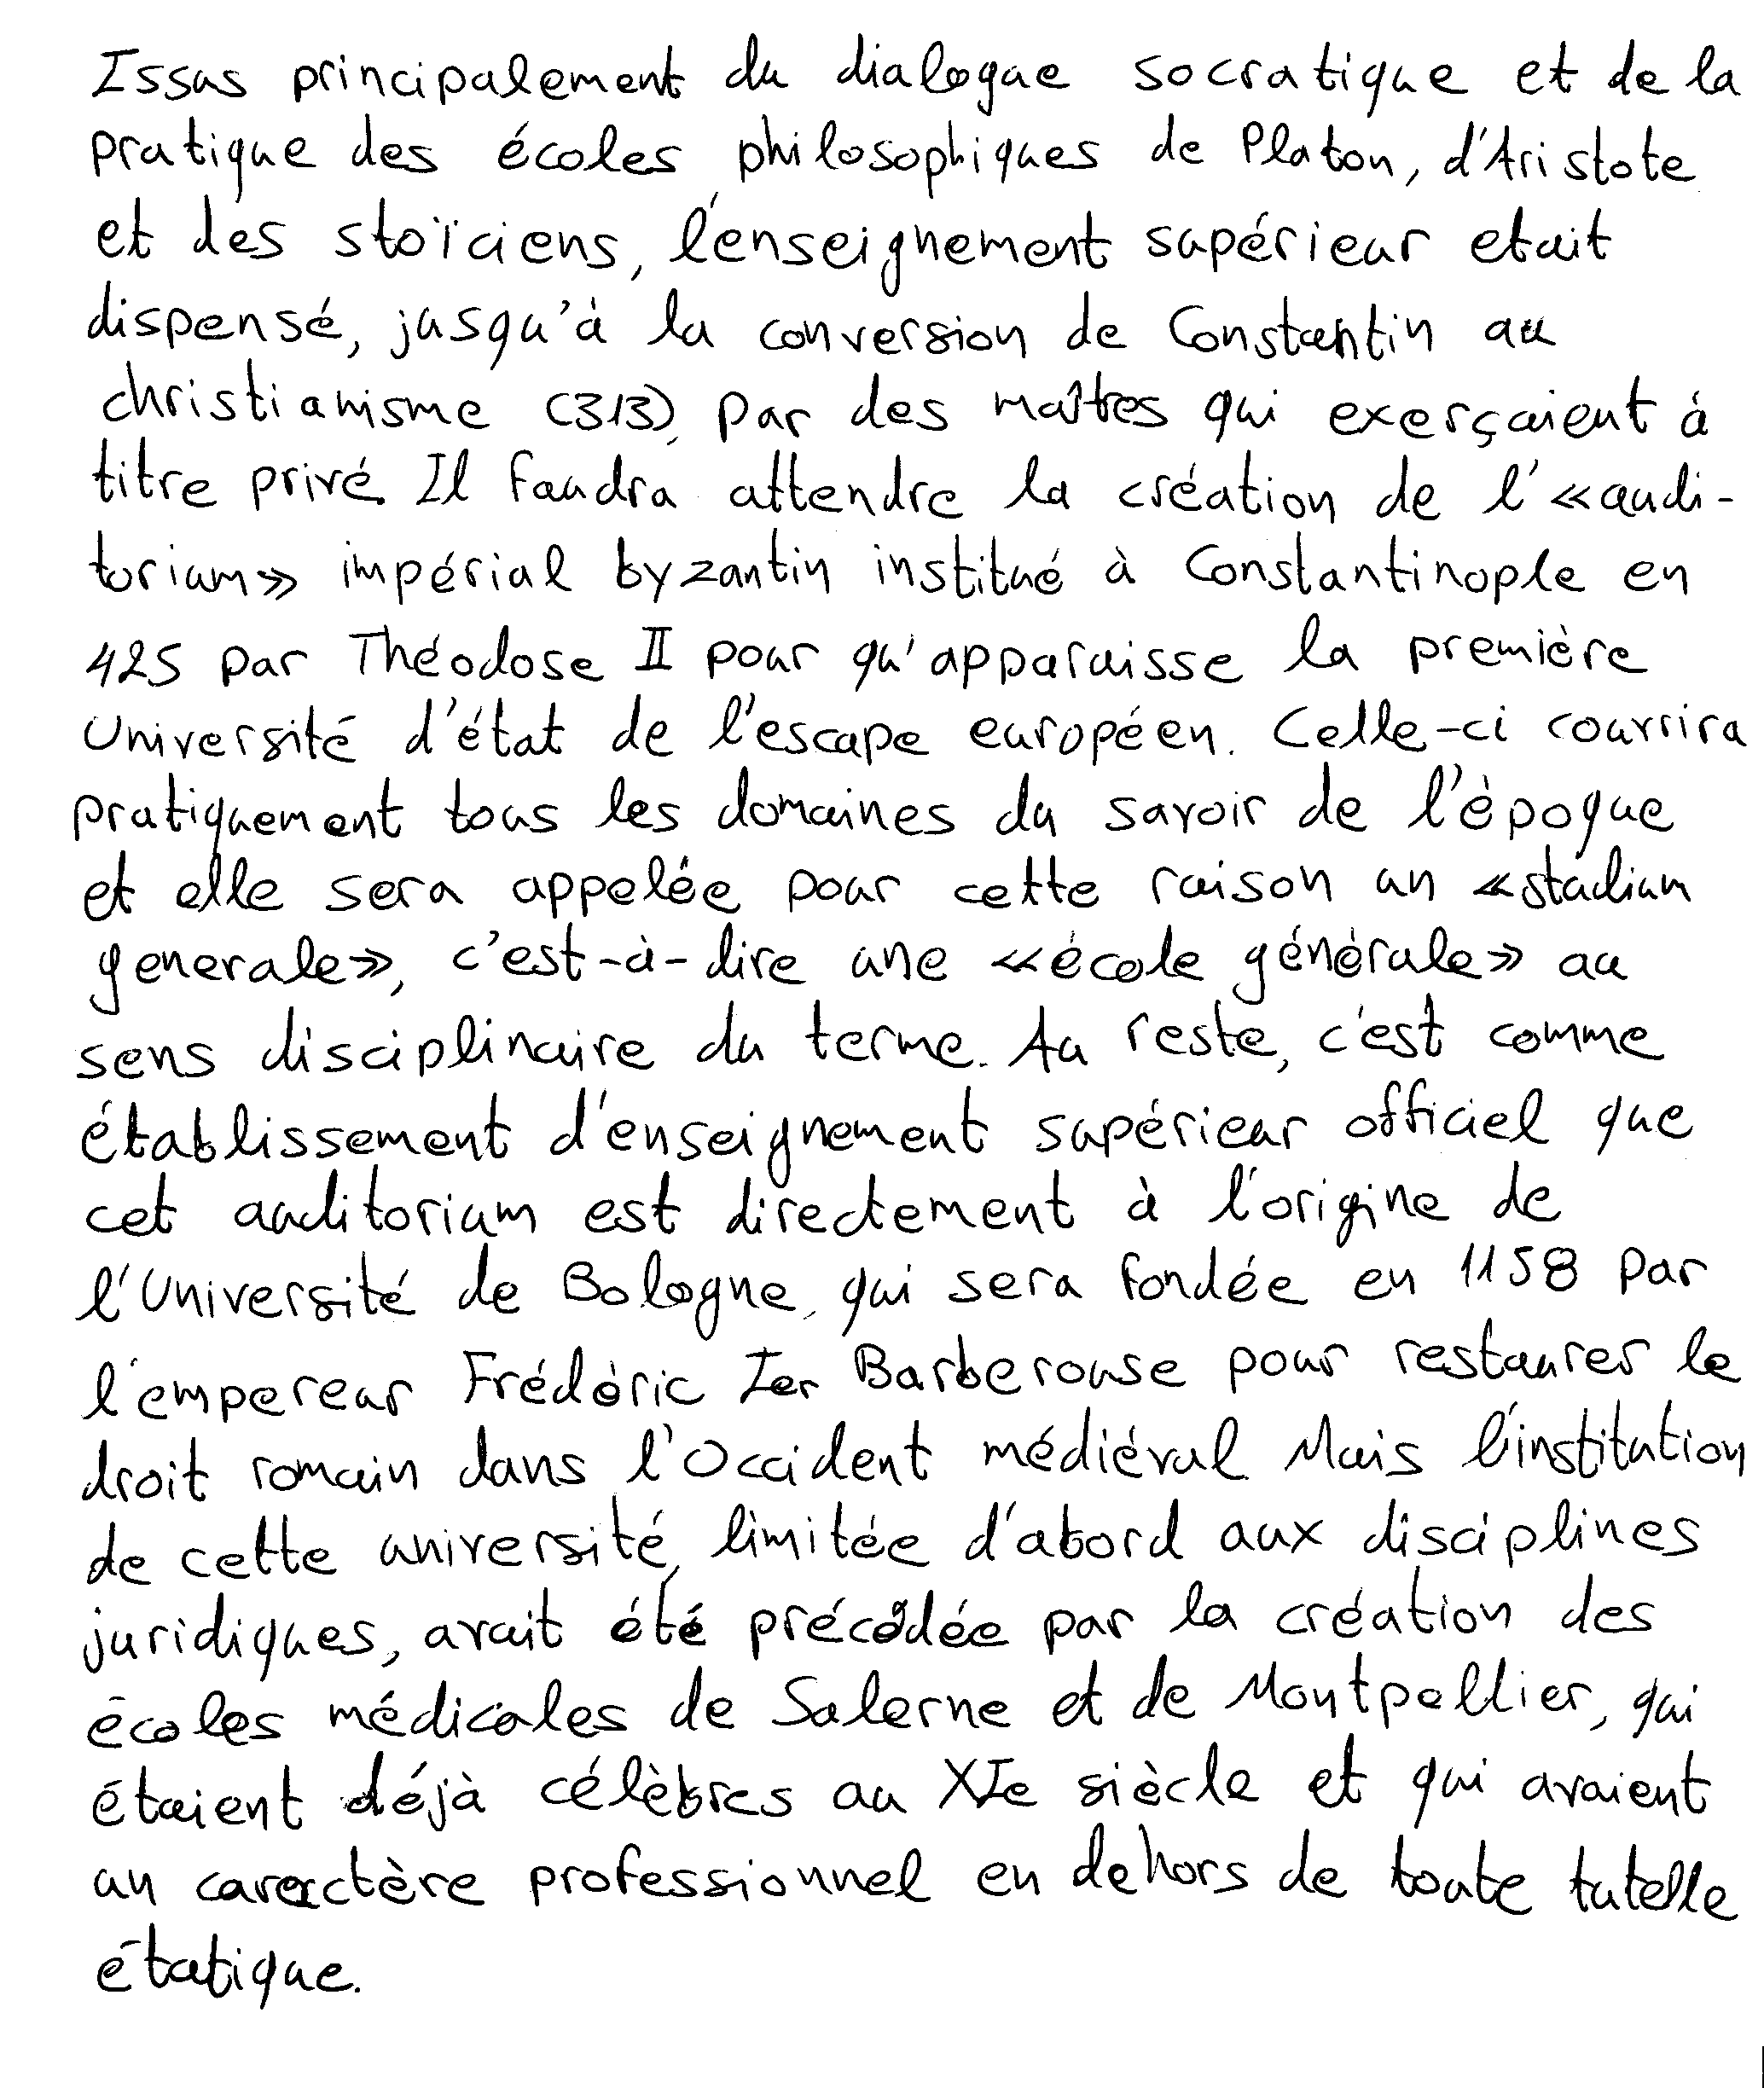 Issus principalement du dialogue socratique et de la
pratique des écoles philosophiques de Platon, d'Aristote
et des stoïciens, l'enseignement supérieur etait
dispensé, jusqu'à la conversion de Constantin au
christianisme (313), par des maîtres qui exerçaient à
titre privé. Il faudra attendre la création de l' «audi-
torium» impérial byzantin institué à Constantinople en
425 par Théodose II pour qu'apparaisse la première
Université d'état de l'escape européen. Celle-ci couvrira
pratiquement tous les domaines du savoir de l'époque
et elle sera appelée pour cette raison un «studium
generale», c'est-à-dire une «école générale» au
sens disciplinaire du terme. Au reste, c'est comme
établissement d'enseignement supérieur officiel que
cet auditorium est directement à l'origine de
l'Université de Bologne, qui sera fondée en 1158 par
l'empereur Frédéric Ier Barberouse pour restaurer le
droit romain dans l'Occident médiéval Mais l'institution
de cette université, limitée d'abord aux disciplines
juridiques, avait été précédée par la création des
écoles médicales de Salerne et de Montpellier, qui
étaient déjà célèbres au XIe siècle et qui avaient
un caractère professionnel en dehors de toute tutelle
étatique.